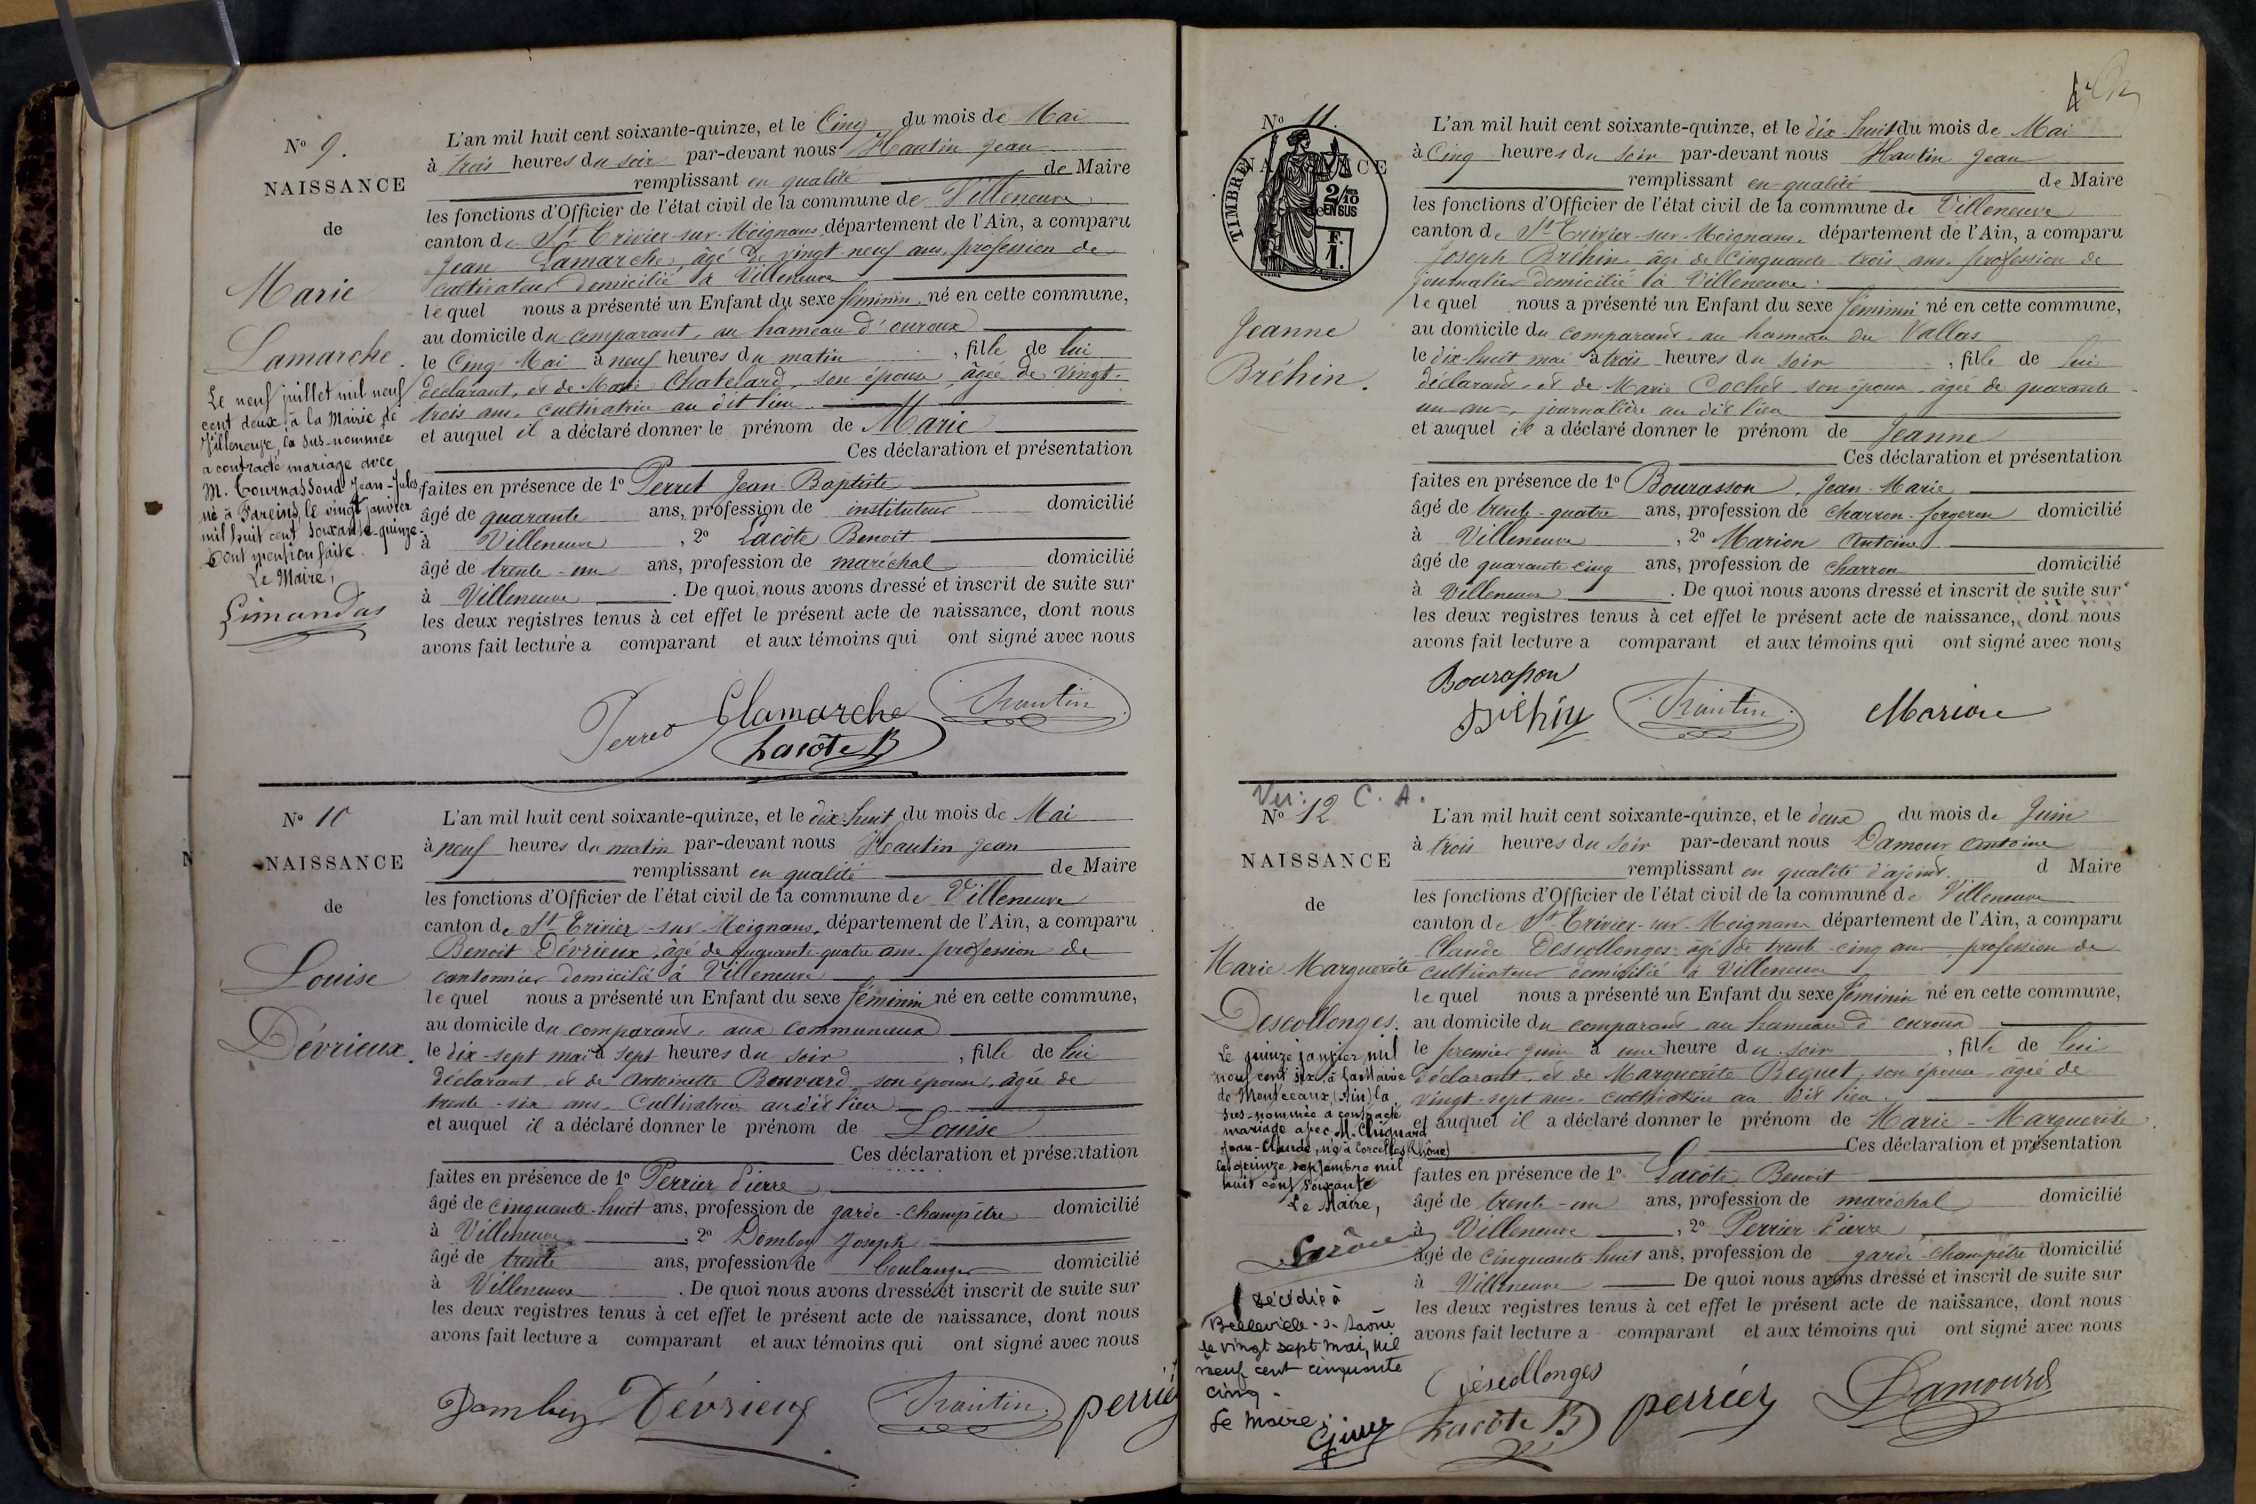 N° 9.
NAISSANCE
de
Marie
Lamarche.
Le neuf juillet mil neuf
cent deux à la Mairie de
Villeneuve, la sus-nommée
a contracté mariage avec
M. Tournassoud Jean-Jules
né à Fareins le vingt janvier
mil huit cent soixante-quinze.
Dont mention faite.
Le Maire,
Limandas
L'an mil huit cent soixante-quinze, et le Cinq du mois de Mai
à trois heures du soir par-devant nous Hautin Jean
remplissant en qualité de Maire
les fonctions d'Officier de l'état civil de la commune de Villeneuve
canton de St Trivier-sur-Moignans, département de l'Ain, a comparu
Jean Lamarche, âgé de vingt-neuf ans, profession de
cultivateur domicilié à Villeneuve
lequel nous a présenté un Enfant du sexe féminin, né en cette commune,
au domicile du comparant, au hameau d'ouroux
le Cinq Mai à neuf heures du matin, fille de lui
déclarant, et de Marie Chatelard, son épouse, âgée de vingt-
trois ans, cultivatrice au dit lieu
et auquel il a déclaré donner le prénom de Marie
Ces déclaration et présentation
faites en présence de 1° Perret Jean-Baptiste
âgé de quarante ans, profession de instituteur domicilié
à Villeneuve, 2° Lacôte Benoit
âgé de trente-un ans, profession de maréchal domicilié
à Villeneuve. De quoi nous avons dressé et inscrit de suite sur
les deux registres tenus à cet effet le présent acte de naissance, dont nous
avons fait lecture a comparant et aux témoins qui ont signé avec nous
Perret Lamarche Hautin
Lacôte B
N° 10
NAISSANCE
de
Louise
Dévrieux.
L'an mil huit cent soixante-quinze, et le dix-huit du mois de Mai
à neuf heures du matin par-devant nous Hautin Jean
remplissant en qualité de Maire
les fonctions d'Officier de l'état civil de la commune de Villeneuve
canton de St Trivier-sur-Moignans, département de l'Ain, a comparu
Benoit Dévrieux, âgé de quarante-quatre ans, profession de
cantonnier domicilié à Villeneuve
lequel nous a présenté un Enfant du sexe féminin né en cette commune,
au domicile du comparant, aux communaux
le dix-sept mai à sept heures du soir, fille de lui
déclarant, et de Antoinette Bouvard, son épouse, âgée de
trente-six ans, Cultivatrice au dit lieu
et auquel il a déclaré donner le prénom de Louise
Ces déclaration et présentation
faites en présence de 1° Perrier Pierre
âgé de cinquante-huit ans, profession de garde-champêtre domicilié
à Villeneuve, 2° Dombey Joseph
âgé de trente ans, profession de boulanger domicilié
à Villeneuve. De quoi nous avons dressé et inscrit de suite sur
les deux registres tenus à cet effet le présent acte de naissance, dont nous
avons fait lecture a comparant et aux témoins qui ont signé avec nous
Dombey Dévrieux Hautin perrier
N° 11.
NAISSANCE
de
TIMBRE
2/10
EN SUS
F.
1.
Jeanne
Bréhin.
L'an mil huit cent soixante-quinze, et le dix-huit du mois de Mai
à Cinq heures du soir par-devant nous Hautin Jean
remplissant en qualité de Maire
les fonctions d'Officier de l'état civil de la commune de Villeneuve
canton de St Trivier-sur-Moignans, département de l'Ain, a comparu
Joseph Bréhin, âgé de Cinquante-trois ans, profession de
journalier domicilié à Villeneuve
lequel nous a présenté un Enfant du sexe féminin né en cette commune,
au domicile du comparant, au hameau du Vallas
le dix-huit mai à trois heures du soir, fille de lui
déclarant, et de Marie Cochet son épouse, âgée de quarante
un ans, journalière au dit lieu
et auquel il a déclaré donner le prénom de Jeanne
Ces déclaration et présentation
faites en présence de 1° Bourasson, Jean-Marie
âgé de trente-quatre ans, profession de charron-forgeron domicilié
à Villeneuve, 2° Marion Antoine
âgé de quarante-cinq ans, profession de charron domicilié
à Villeneuve. De quoi nous avons dressé et inscrit de suite sur
les deux registres tenus à cet effet le présent acte de naissance, dont nous
avons fait lecture a comparant et aux témoins qui ont signé avec nous
Bourasson
Bréhin Hautin Marion
Ver: C. A.
N° 12
NAISSANCE
de
Marie Marguerite
Descollonges.
Le quinze janvier mil
neuf cent six, à la Mairie
de Montceaux, (Ain) la
sus-nommée a contracté
mariage avec M. Chignard
Jean-Claude, né à Corcelles (Rhône)
le quinze septembre mil
huit cent soixante
Le Maire,
Décédée à
Belleville-s-Saône
le vingt sept mai, mil
neuf cent cinquante
cinq.
Le Maire,
L'an mil huit cent soixante-quinze, et le deux du mois de Juin
à trois heures du soir par-devant nous Damour Antoine
remplissant en qualité d'ajoint d Maire
les fonctions d'Officier de l'état civil de la commune de Villeneuve
canton de St Trivier-sur-Moignans département de l'Ain, a comparu
Claude Descollonges âgé de trente-cinq ans, profession de
cultivateur domicilié à Villeneuve
lequel nous a présenté un Enfant du sexe féminin né en cette commune,
au domicile du comparant au hameau d'ouroux
le premier juin à une heure du soir, fille de lui
déclarant, et de Marguerite Bequet, son épouse, âgée de
vingt-sept ans, cultivatrice au dit lieu.
et auquel il a déclaré donner le prénom de Marie-Marguerite.
Ces déclaration et présentation
faites en présence de 1° Lacôte Benoit
âgé de trente-un ans, profession de maréchal domicilié
à Villeneuve, 2° Perrier Pierre,
âgé de Cinquante huit ans, profession de garde-champêtre domicilié
à Villeneuve De quoi nous avons dressé et inscrit de suite sur
les deux registres tenus à cet effet le présent acte de naissance, dont nous
avons fait lecture a comparant et aux témoins qui ont signé avec nous
Descollonges
Lacôte B perrier Damour